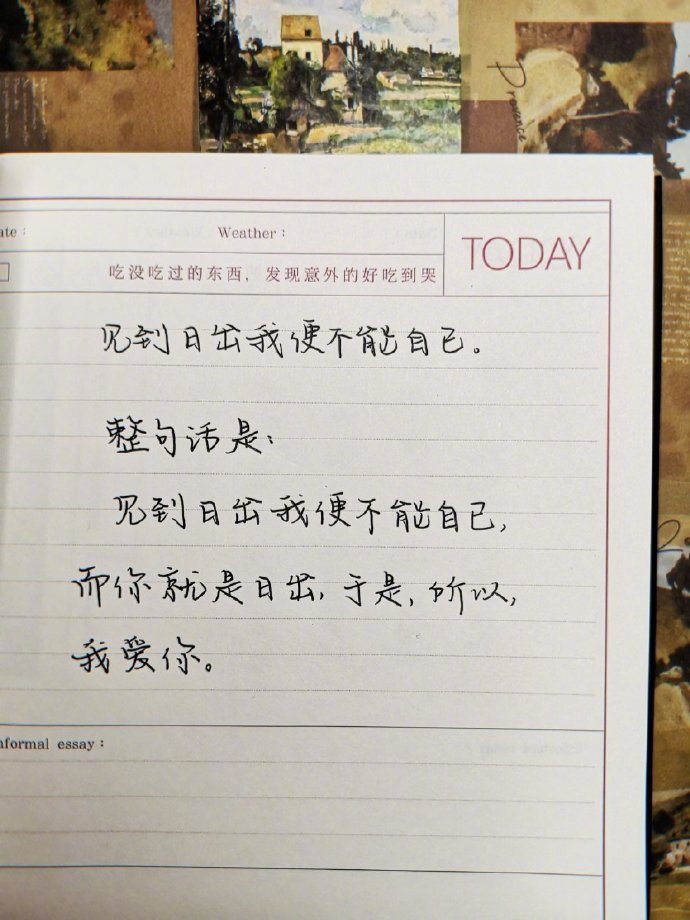 Provence
ate:
Weather:
TODAY
吃没吃过的东西，发现意外的好吃到哭
见到日出我便不能自已。
整句话是:
见到日出我便不能自已，
而你就是日出，于是，所以，
我爱你。
nformal essay: